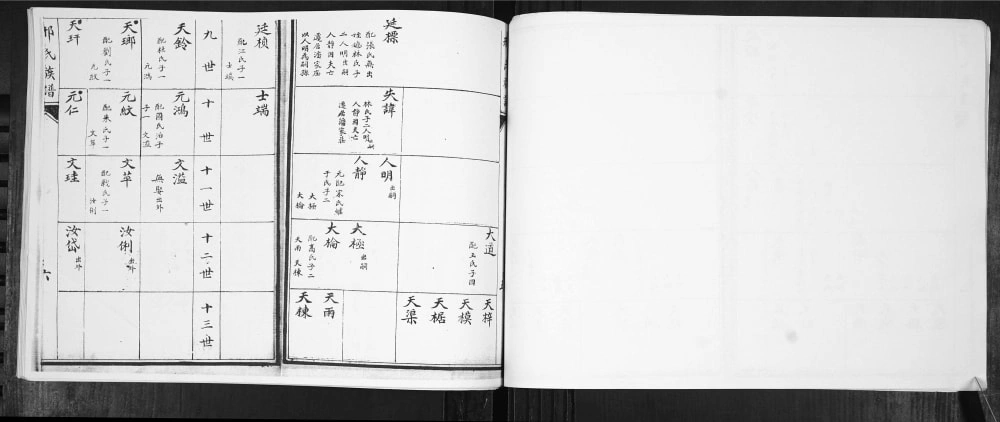 廷標
配張氏無出
姪繼林氏子
二人明出嗣
人靜因夫亡
遷居潘家庙
以人明為嗣孫
失諱
林氏子二人明出嗣
人靜因夫亡
遷居潘家庙
人明 出嗣
人靜
元配宋氏繼
于氏子二
大極
大檢
大道
配王氏子四
大極 出嗣
大檢
配萬氏子二
天雨 天棟
天梓
天模
天椐
天渠
天雨
天棟
廷楨
配江氏子一
士端
士端
九世
十世
十一世
十二世
十三世
天鈴
配杜氏子一
元鴻
元鴻
配國氏治子
子一 文溢
文溢
無娶出外
天瑯
配劉氏子一
元紋
元紋
配朱氏子一
文革
文革
配戰氏子一
汝俐
汝俐 出外
天玕
元仁
文珪
汝岱 出外
祁氏族譜
六